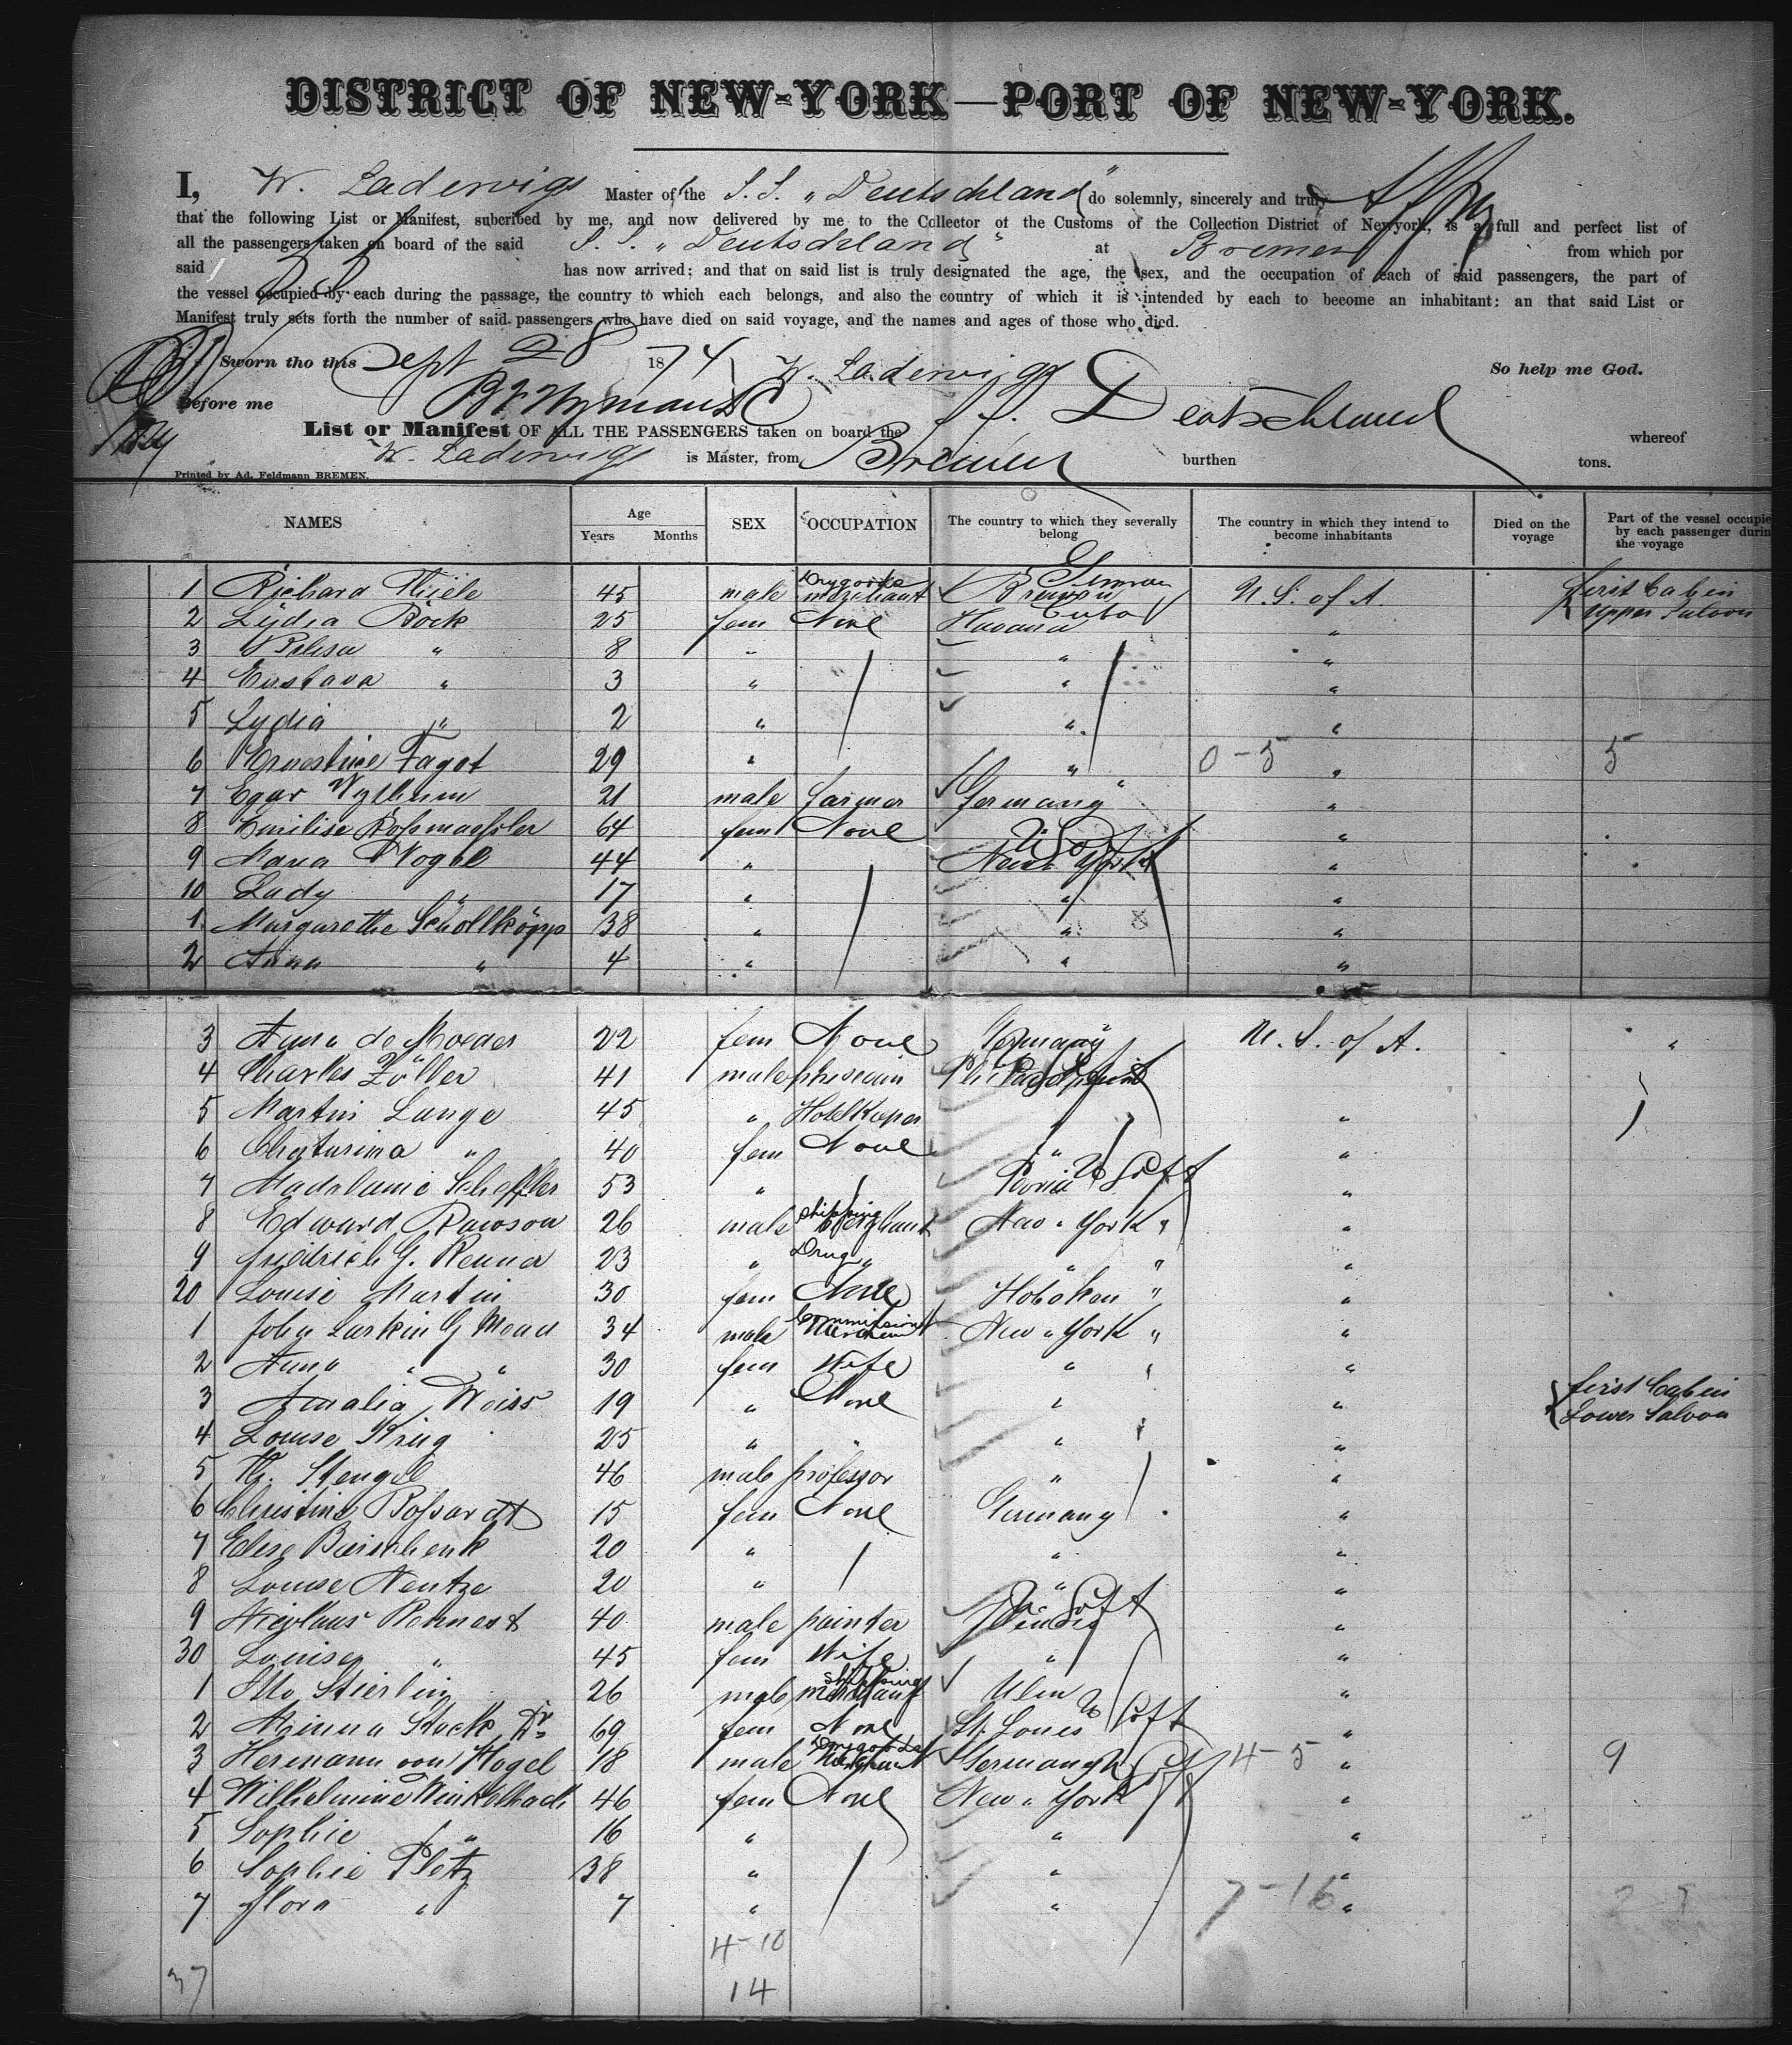 DISTRICT OF NEW-YORK—PORT OF NEW-YORK.
I, W. Ladewigs Master of the S. S. „Deutschland" do solemnly, sincerely and truly
that the following List or Manifest, subcribed by me, and now delivered by me to the Collector of the Customs of the Collection District of Newyork, is a full and perfect list of
all the passengers taken on board of the said S. S. „Deutschland" at Bremen from which por
said has now arrived; and that on said list is truly designated the age, the sex, and the occupation of each of said passengers, the part of
the vessel occupied by each during the passage, the country to which each belongs, and also the country of which it is intended by each to become an inhabitant: an that said List or
Manifest truly sets forth the number of said passengers who have died on said voyage, and the names and ages of those who died.
Sworn tho this Sept 28 1874 W. Ladewigs So help me God.
before me
List or Manifest OF ALL THE PASSENGERS taken on board the S. S. Deutschland whereof
W. Ladewigs is Master, from Bremen burthen tons.
Printed by Ad. Feldmann BREMEN.
NAMES Age Years Months SEX OCCUPATION The country to which they severally belong The country in which they intend to become inhabitants Died on the voyage Part of the vessel occupie by each passenger durin the voyage
1 Richard Thiele 45 male Drygoods merchant Bremen German U. S. of A. first Cabin Upper Saloon
2 Lydia Böck 25 fem None Havana Cuba "
3 " 8 " " "
4 Gustava " 3 " " "
5 Lydia " 2 " " "
6 Ernestine Fagot 29 " " 0-5 " 5
7 Egar 21 male farmer Germany "
8 Emilise Roßmaessler 64 fem None "
9 Maria Vogel 44 " New York "
10 Lady " 17 " " "
1 Margarethe Schollkopp 38 " " "
2 Anna " 4 " " "
3 Anna de Roeder 22 fem None Germany U. S. of A. "
4 Charles Zöller 41 male phisician
5 Martin Lange 45 " Hotelkeeper "
6 Chaturina " 40 fem None " "
7 Madalanie Scheffler 53 " Peoria "
8 Edward Rawson 26 male shipping merchant New York " "
9 friedrich G. Renner 23 " Drug " " " "
20 Louise Martin 30 fem None Hoboken " "
1 John Larkin G Mead 34 male Commission Merchant New York " "
2 Anna " " 30 fem Wife " " "
3 Amalia Weiss 19 " None " " first Cabin Lower Saloon
4 Louise Krug 25 " " " "
5 Th. Stengel 46 male professor " "
6 Christine Boßardt 15 fem None Germany "
7 Elise 20 " " "
8 Louise Hentze 20 " " "
9 Nicolaus 40 male painter "
30 Louise " 45 fem Wife " "
1 Otto Stierlin 26 male shipping merchant Ulm "
2 Minna Stack 69 fem None St. Louis "
3 Hermann von Hogel 18 male Drygoods Merchant Germany 4-5 " 9
4 Wilhelmine Winkelbach 46 fem None New York "
5 Sophie " 16 " " "
6 Sophie Pletz 38 " " "
7 flora " 7 " " 7-16 "
4-10
37 14